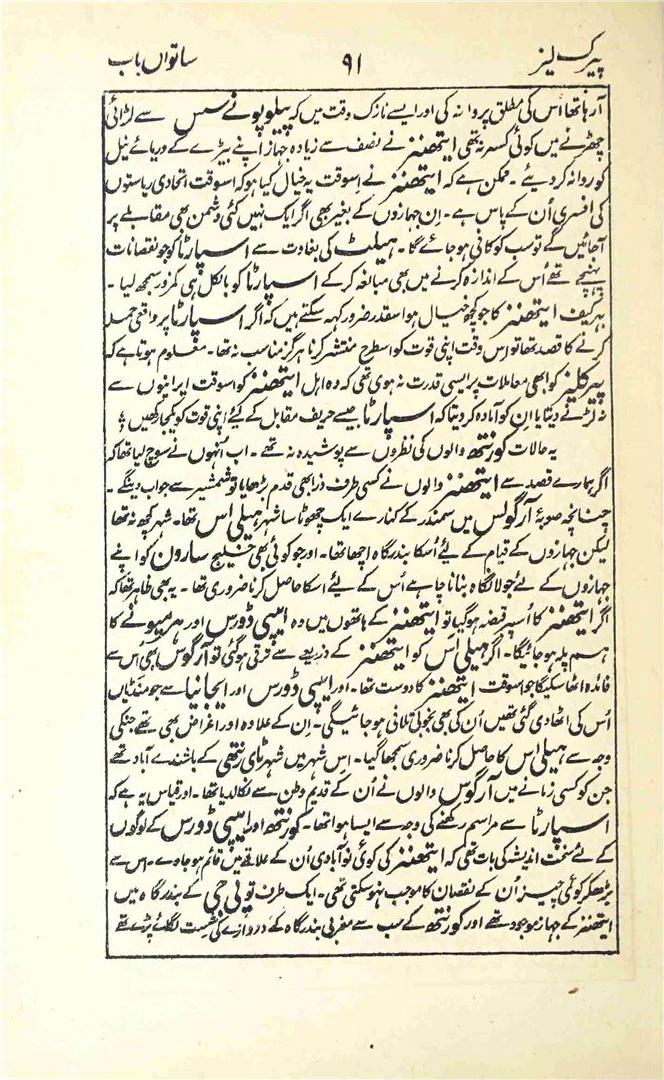 پیرک لیز ۹۱ ساتواں باب
آرہا تھا اُس کی مطلق پروا نہ کی اور ایسے نازک وقت میں کہ پیلوپونے سس سے لڑائی
چھڑنے میں کوئی کسر نہ تھی ایتھننز نے نصف سے زیادہ جہاز اپنے بیڑے کے دریائے نیل
کو روانہ کر دیئے ۔ ممکن ہے کہ ایتھننز نے اسوقت یہ خیال کیا ہو کہ اسوقت اتحادی ریاستوں
کی افسری اُن کے پاس ہے ۔ اِن جہازوں کے بغیر بھی اگر ایک نہیں کئی دشمن بھی مقابلے پر
آجائیں گے تو سب کو کافی ہو جائے گا ۔ ہیلٹ کی بغاوت سے اسپارٹا کو جو نقصانات
پہنچے تھے اُس کے اندازہ کرنے میں بھی مبالغہ کر کے اسپارٹا کو بالکل ہی کمزور سمجھ لیا ۔
بہر کیف ایتھننز کا جو کچھ خیال ہو اسقدر ضرور کہہ سکتے ہیں کہ اگر اسپارٹا پر واقعی حملہ
کرنے کا قصد تھا تو اس وقت اپنی قوت کو اسطرح منتشر کرنا ہرگز مناسب نہ تھا ۔ معلوم ہوتا ہے کہ
پیرکلیز کو ابھی معاملات پر ایسی قدرت نہ ہوی تھی کہ وہ اہل ایتھننز کو اسوقت ایرانیوں سے
نہ لڑنے دیتا یا اِن کو آمادہ کر دیتا کہ اسپارٹا جیسے حریف مقابل کے لئے اپنی قوت کو یکجا رکھیں ؛
یہ حالات کورنتھ والوں کی نظروں سے پوشیدہ نہ تھے ۔ اب اُنہوں نے سوچ لیا تھا کہ
اگر ہمارے قصد سے ایتھننز والوں نے کسی طرف ذرا بھی قدم بڑھایا تو شمشیر سے جواب دینگے ۔
چنانچہ صوبۂ آرگولس میں سمندر کے کنارے ایک چھوٹا سا شہر ہیلی اس تھا ۔ شہر کچھ نہ تھا
لیکن جہازوں کے قیام کے لئے اُسکا بندرگاہ اچھا تھا ۔ اور جو کوئی بھی خلیج سارون کو اپنے
جہازوں کے لئے جولانگاہ بنانا چاہے اُس کے لئے اسکا حاصل کرنا ضروری تھا ۔ یہ بھی ظاہر تھا کہ
اگر ایتھننز کا اُسپر قبضہ ہوگیا تو ایتھننز کے ہاتھوں میں وہ ایپی ڈورس اور ہرمیونے کا
ہم پلہ ہو جائیگا ۔ اگر ہیلی اس کو ایتھننز کے ذریعے سے ترقی ہوگئی تو آرگوس بھی اُس سے
فائدہ اٹھا سکیگا جو اسوقت ایتھننز کا دوست تھا ۔ اور ایپی ڈورس اور ایجانیا سے جو منڈیاں
اُس کی اٹھا دی گئی تھیں اُن کی بھی بخوبی تلافی ہو جائیگی ۔ اِن کے علاوہ اور اغراض بھی تھے جنکی
وجہ سے ہیلی اس کا حاصل کرنا ضروری سمجھا گیا ۔ اِس شہر میں شہر ٹائی رنتھی کے باشندے آباد تھے
جن کو کسی زمانے میں آرگوس والوں نے اُن کے قدیم وطن سے نکالدیا تھا ۔ اور قیاس یہ ہے کہ
اسپارٹا سے مراسم رکھنے کی وجہ سے ایسا ہوا تھا ۔ کورنتھ اور ایپی ڈورس کے لوگوں
کے لئے سخت اندیشہ کی بات تھی کہ ایتھننز کی کوئی نو آبادی اُن کے علاقے میں قائم ہو جاوے ۔ اس سے
بڑھکر کوئی چیز اُن کے نقصان کا موجب نہو سکتی تھی ۔ ایک طرف تو پی جی کے بندرگاہ میں
ایتھننز کے جہاز موجود تھے اور کورنتھ کے سب سے مغربی بندرگاہ کے دروازے کی شست لگائے پڑے تھے